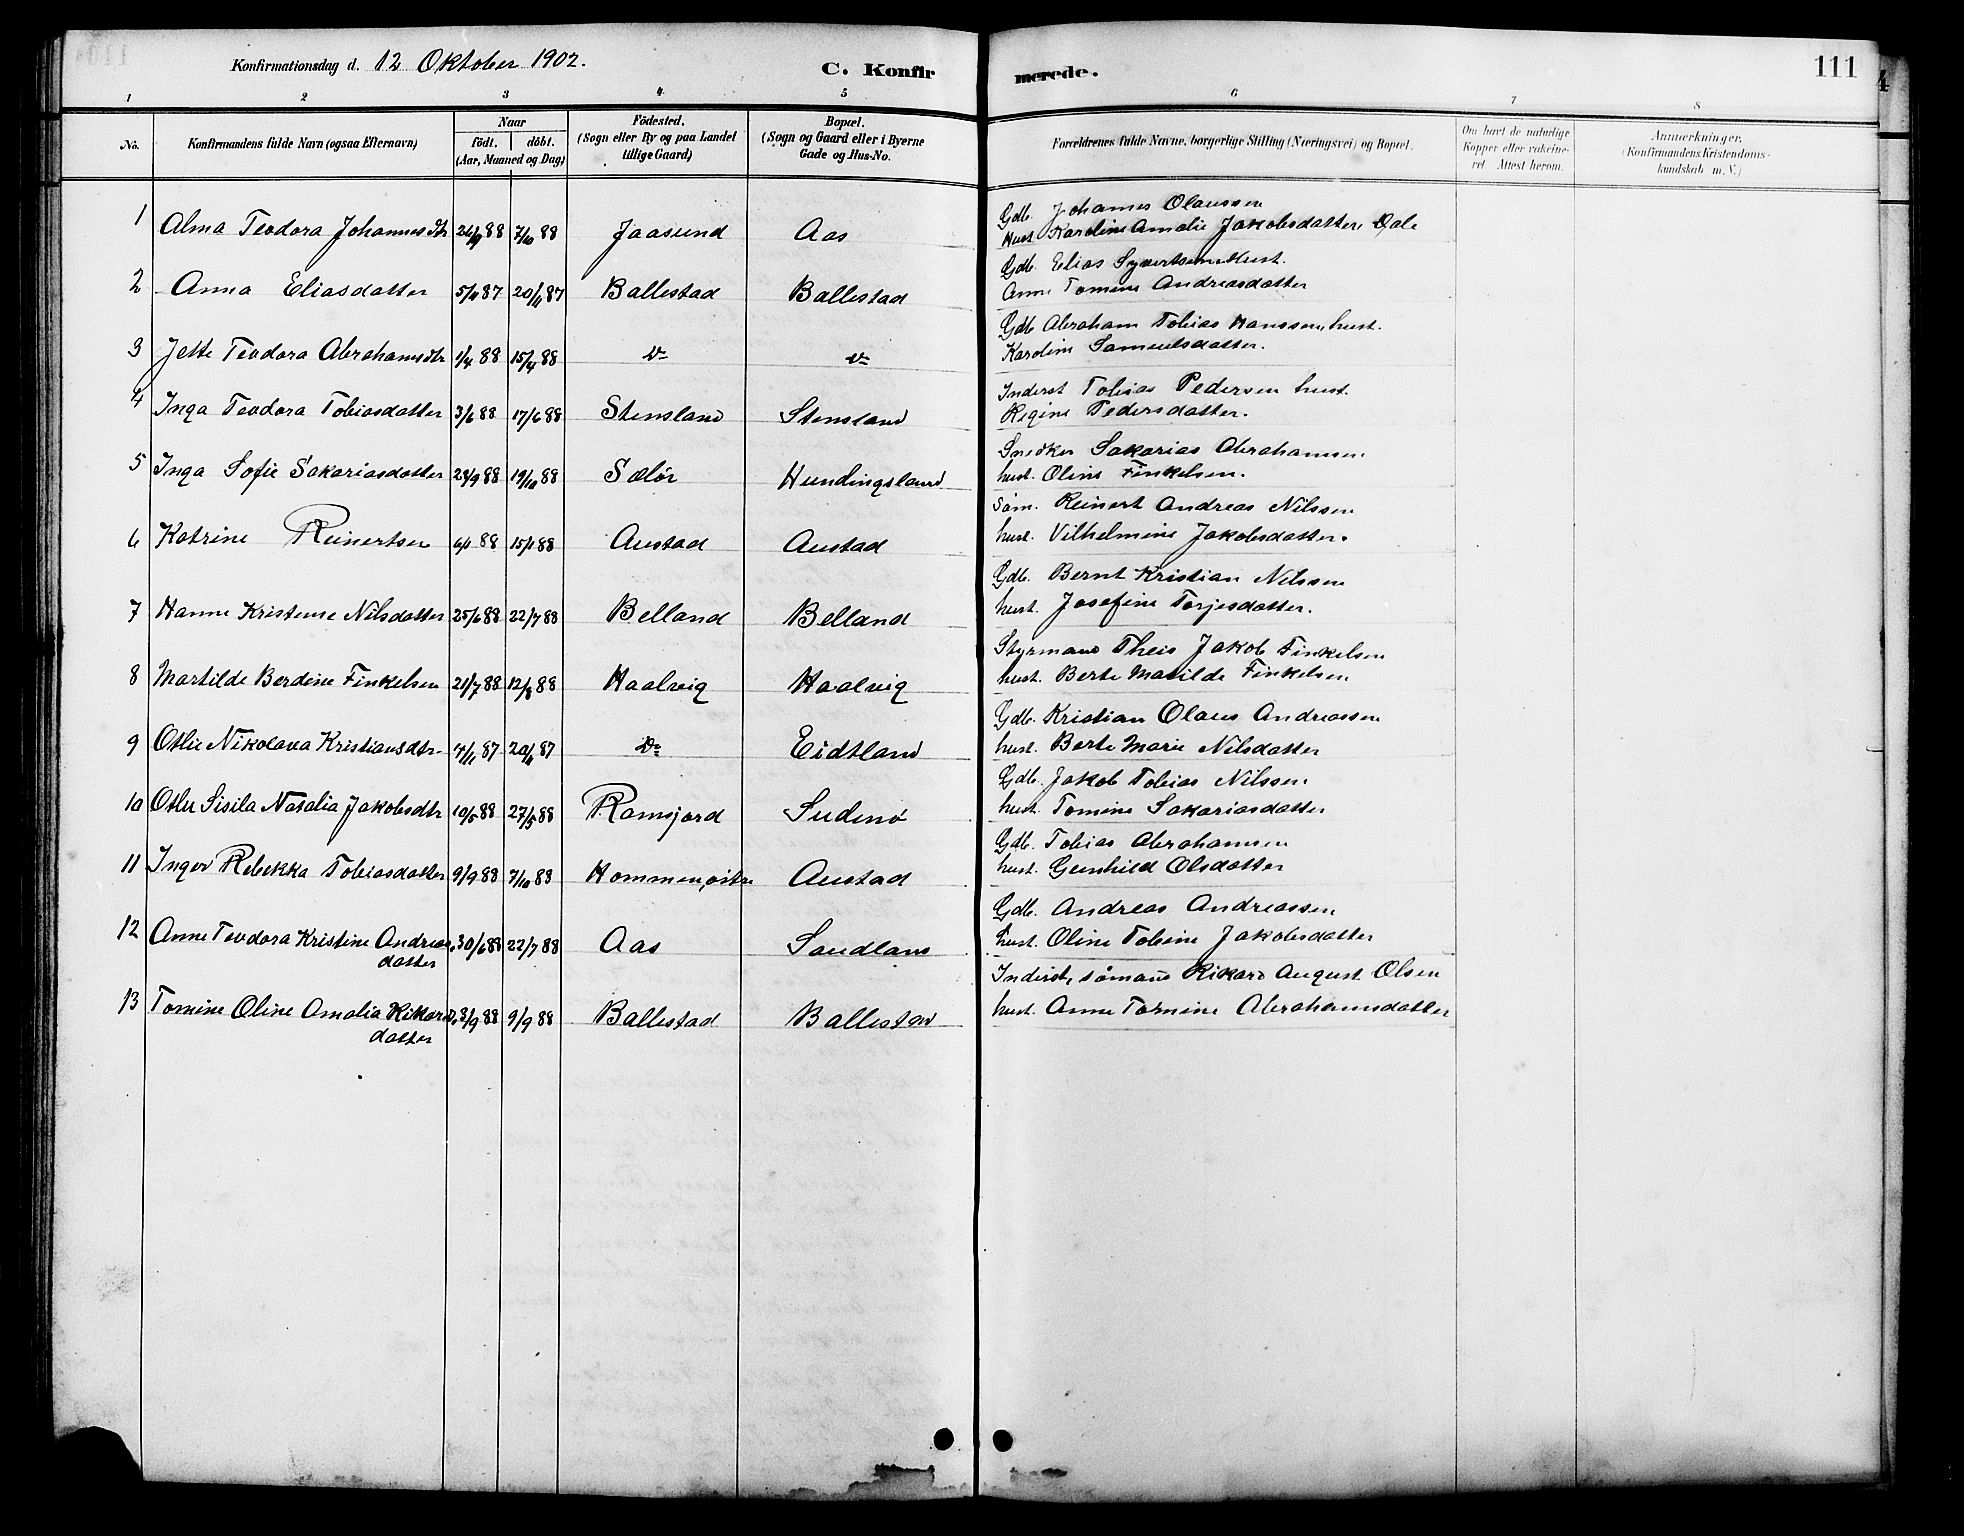 Konfirmationsdag d. 12 Oktober 1902.
C. Konfir
merede.
111
1 2 3 4 5 6 7 8
No.
Konfirmandens fulde Navn (ogsaa Efternavn)
Naar
födt. döbt.
(Aar, Maaned og Dag)
Födested.
(Sogn eller By og paa Landet
tillige Gaard)
Bopæl.
(Sogn og Gaard eller i Byerne
Gade og Hus-No.
Forældrenes fulde Navne, borgerlige Stilling (Næringsvei) og Bopæl.
Om havt de naturlige
Kopper eller vakcine-
ret. Attest herom.
Anmærkninger.
(Konfirmandens Kristendoms-
kundskab m. V.)
1 Alma Teodora Johannesdtr 7/10 88 Jaasund Aas
Gdb. Johannes Olaussen
Hust Karoline Amalie Jakobsdatter Dale
2 Anna Eliasdatter 5/11 87 20/11 87 Ballestad Ballestad
Gdb. Elias Syvertsen Hust.
Anne Tomine Andreasdatter
3 Jette Teodora Abrahamsdtr 1/4 88 15/4 88 do do
Gdb Abraham Tobias Hanssen, hust.
Karoline Samuelsdatter.
4 Inga Teodora Tobiasdatter 3/6 88 17/6 88 Stensland Stensland
Inderst Tobias Pedersen hust.
Regine Pedersdatter.
5 Inga Sofie Sakariasdatter 28/9 88 19/10 88 Sælör Hundingsland
Snedker Sakarias Abrahamsen
hust. Oline Finkelsen.
6 Katrine Reinertsen 6/1 88 15/1 88 Austad Austad
Söm. Reinert Andreas Nilssen
hust. Vilhelmine Jakobsdatter.
7 Hanne Kristense Nilsdatter 25/6 88 22/7 88 Belland Belland
Gdb. Bernt Kristian Nilssen
hust. Josefine Torjesdatter.
8 Martilde Berdine Finkelsen 21/7 88 12/8 88 Haalvig Haalvig
Styrmand Theis Jakob Finkelsen
hust. Berte Matilde Finkelsen
9 Otlie Nikolava Kristiansdtr 4/11 87 20/11 87 do Eidtland
Gdb. Kristian Olaus Andreassen
hust. Berte Marie Nilsdatter
10 Otlie Sisila Natalia Jakobsdtr 10/5 88 27/5 88 Ramsjord Sudinö
Gdb. Jakob Tobias Nilssen
hust. Tomine Sakariasdatter
11 Inger Rebekka Tobiasdatter 9/9 88 7/10 88 Hommen, östre Austad
Gdb. Tobias Abrahamsen
hust. Gunhild Olsdatter
12 Anne Teodora Kristine Andreas- 30/6 88 22/7 88 Aas Sandland
datter
Gdb. Andreas Andreassen
hust. Oline Tobine Jakobsdatter
13 Tomine Oline Amalia Rikard- 3/9 88 9/9 88 Ballestad Ballestad
datter
Inderst, sömand Rikard August Olsen
hust. Anne Tomine Abrahamsdatter